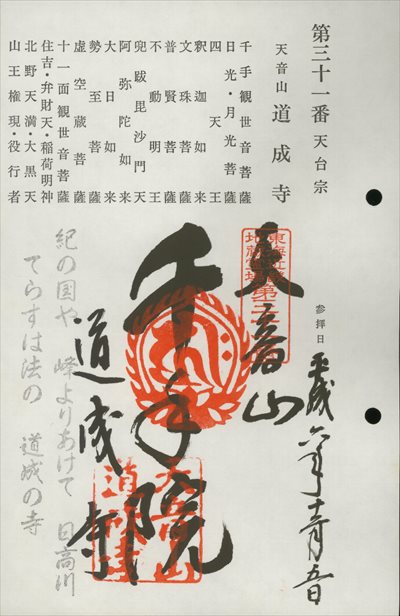 第三十一番 天台宗
天音山 道成寺
千手観世音菩薩
日光・月光菩薩
四天王
釈迦如来
文珠菩薩
普賢菩薩
不動明王
兜跋毘沙門天
阿弥陀如来
大日如来
勢至菩薩
虚空蔵菩薩
十一面観世音菩薩
住吉・弁財天・稲荷明神
北野天満・大黒天
山王権現・役行者
参拝日 平成六年十一月五日
天音山
千手院
道成寺
紀の国や 峰よりあけて 日高川
てらすは法の 道成の寺